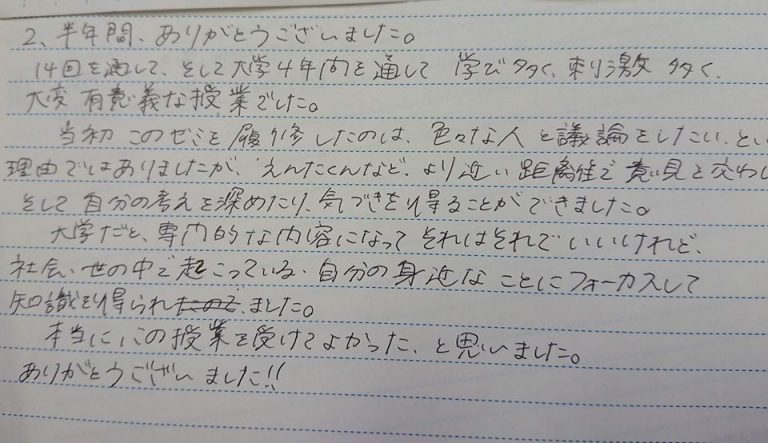 2、半年間、ありがとうございました。
14回を通して、そして大学4年間を通して 学び多く、刺激多く、
大変 有意義な授業でした。
当初 このゼミを履修したのは、色々な人と議論をしたい、とい
理由ではありましたが、えんたくんなど、より近い距離で意見を交わし
そして自分の考えを深めたり、気づきを得ることができました。
大学だと、専門的な内容になって それはそれでいいけれど、
社会、世の中で起こっている、自分の身近なことにフォーカスして
知識を得られたので、ました。
本当にこの授業を受けてよかった、と思いました。
ありがとうございました!!